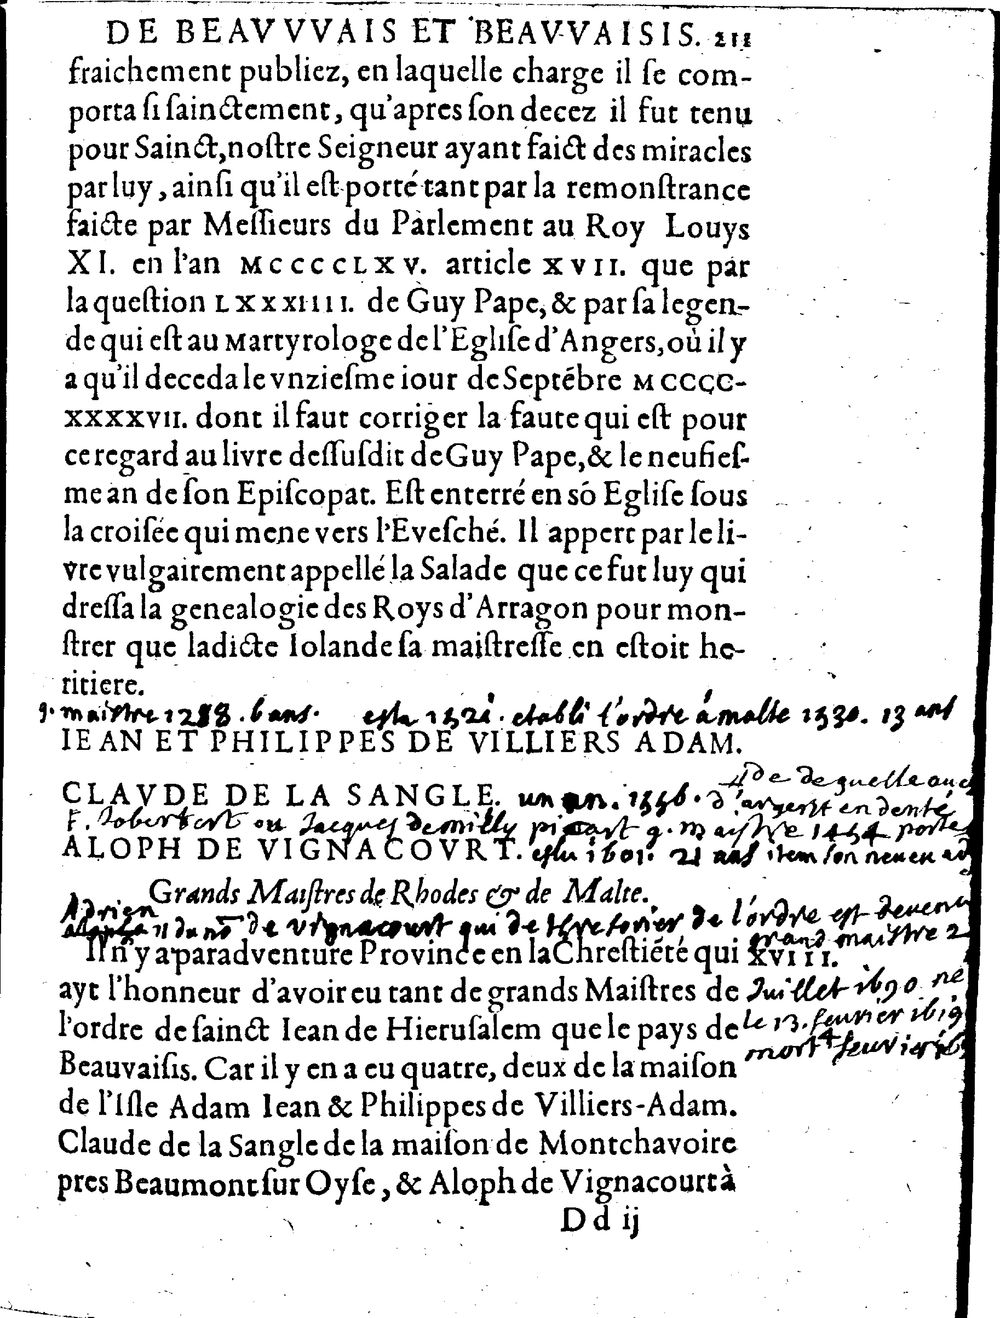 DE BEAVVVAIS ET BEAVVAISIS. 211
fraichement publiez, en laquelle charge il ſe com-
porta ſi ſainctement, qu'apres ſon decez il fut tenu
pour Sainct, noſtre Seigneur ayant faict des miracles
par luy, ainſi qu'il eſt porté tant par la remonſtrance
faicte par Meſſieurs du Parlement au Roy Louys
XI. en l'an MCCCCLXV. article XVII. que par
la queſtion LXXXIIII. de Guy Pape, & par ſa legen-
de qui eſt au Martyrologe de l'Egliſe d'Angers, où il y
a qu'il deceda le vnzieſme iour de Septẽbre MCCCC-
XXXXVII. dont il faut corriger la faute qui eſt pour
ce regard au livre deſſuſdit de Guy Pape, & le neufieſ-
me an de ſon Epiſcopat. Eſt enterré en sõ Egliſe ſous
la croiſée qui mene vers l'Eveſché. Il appert par le li-
vre vulgairement appellé la Salade que ce fut luy qui
dreſſa la genealogie des Roys d'Arragon pour mon-
ſtrer que ladicte Iolande ſa maiſtreſſe en eſtoit he-
ritiere.
g. maistre 1288. 6 ans. eslu 1521. etabli l'ordre à malte 1530. 13 ans
IEAN ET PHILIPPES DE VILLIERS ADAM.
de gueulle au
CLAVDE DE LA SANGLE. un an. 1556. d'argent en denté
F. ou Jacques de milly picart g. maistre 1454 porte
ALOPH DE VIGNACOVRT. eslu 1601. 21 ans item son neveu
Grands Maiſtres de Rhodes & de Malte.
Adrien
11 du nõ de vignacourt qui de thresorier de l'ordre est devenu
grand maistre 2
Il n'y a paradventure Province en la Chreſtiẽté qui XVIII.
ayt l'honneur d'avoir eu tant de grands Maiſtres de Juillet 1690 né
l'ordre de ſainct Iean de Hieruſalem que le pays de le 13. fevrier 1619
mort 4 fevrier
Beauvaiſis. Car il y en a eu quatre, deux de la maiſon
de l'Iſle Adam Iean & Philippes de Villiers-Adam.
Claude de la Sangle de la maiſon de Montchavoire
pres Beaumont ſur Oyſe, & Aloph de Vignacourt à
Dd ij